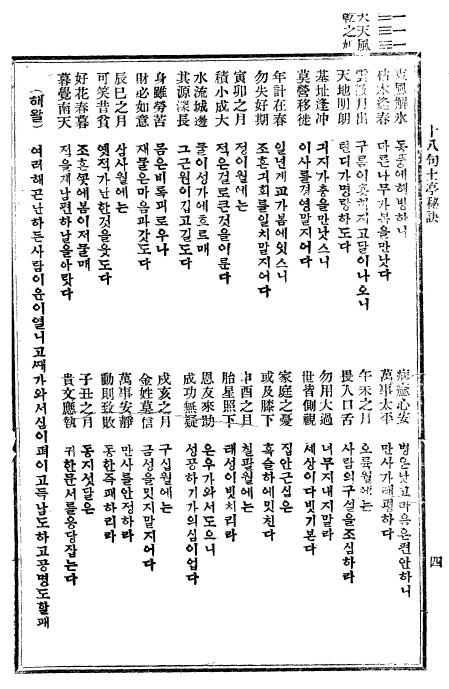 一一一
大天風
乾之姤
十八句土亭秘訣
東風解氷 동풍에해빙하니
枯木逢春 마른나무가봄을만낫다
雲散月出 구름이훗허지고달이나오니
天地明朗 텬디가명랑하도다
基址逢冲 긔지가충을만낫스니
莫營移徙 이사를경영말지어다
年計在春 일년계교가봄에잇스니
勿失好期 조흔긔회를일치말지어다
寅卯之月 정이월에는
積小成大 적은걸로큰것을이룬다
水流城邊 물이성가에흐르매
其源深長 그근원이깁고길도다
身雖勞苦 몸은비록괴로우나
財必如意 재물은마음과갓도다
辰巳之月 삼사월에는
可笑昔貧 옛적가난한것을웃도다
好花春暮 조흔꼿에봄이저물매
暮覺南天 적을제남편하날을아랏다
病癒心安 병은낫고마음은편안하니
萬事太平 만사가태평하다
午未之月 오륙월에는
畏人口舌 사람의구설을조심하라
勿用大過 너무지내지말라
世皆側視 세상이다빗기본다
家庭之憂 집안근심은
或及膝下 혹슬하에밋친다
申酉之月 칠팔월에는
胎星照下 태성이빗치리라
恩友來助 은우가와서도으니
成功無疑 성공하기가의심이업다
戌亥之月 구십월에는
金姓莫信 금성을밋지말지어다
萬事安靜 만사를안정하라
動則致敗 동한즉패하리라
子丑之月 동지섯달은
貴文應執 귀한문서를응당잡는다
(해왈) 여러해곤난하든사람이운이열니고때가와서심이펴이고득남도하고공명도할괘
四